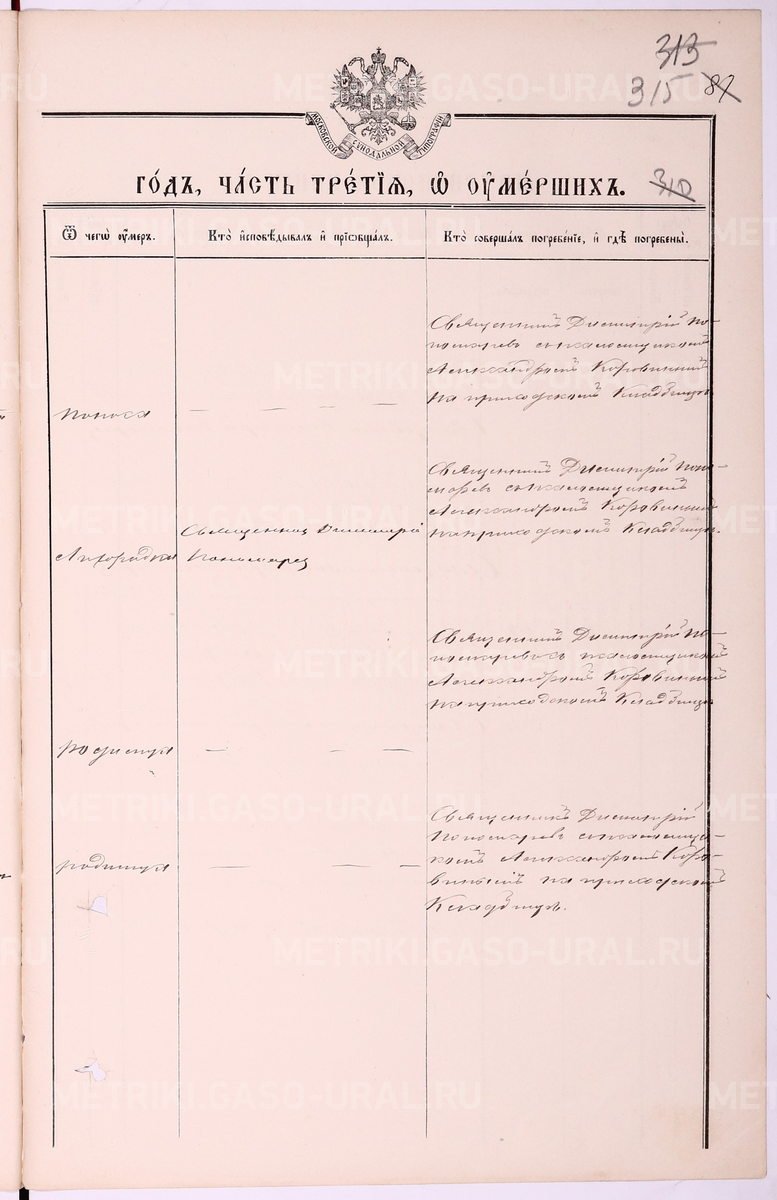 313
315 87
МОСКОВСКОЙ СѴНОДАЛЬНОЙ ТИПОГРАФІИ
ГО́ДЪ, ЧА́СТЬ ТРЕ́ТІѦ, Ѽ ОУ҆МЕ́РШИХЪ.
310
Ѿ чегѡ̀ оу҆́меръ.
Кто̀ и҆сповѣ́дывалъ и҆ прїѡбща́лъ.
Кто̀ соверша́лъ погребе́нїе, и҆ гдѣ̀ погребены̀.
Священникъ Димитрій По-
помаревъ съ псаломщикомъ
Александромъ Коровинымъ
на приходскомъ кладбищѣ
поноса
Священникъ Димитрій Поно-
маревъ съ псаломщикомъ
Александромъ Коровинымъ
на приходскомъ кладбищѣ.
Лихорадки
Священникъ Димитрій
Пономаревъ
Священникъ Димитрій По-
номаревъ съ псаломщикомъ
Александромъ Коровинымъ
на приходскомъ кладбищѣ
родимца
Священникъ Димитрій
Пономаревъ съ псаломщи-
комъ Александромъ Коро-
винымъ на приходскомъ
кладбищѣ.
родимца
METRIKI.GASO-URAL.RU